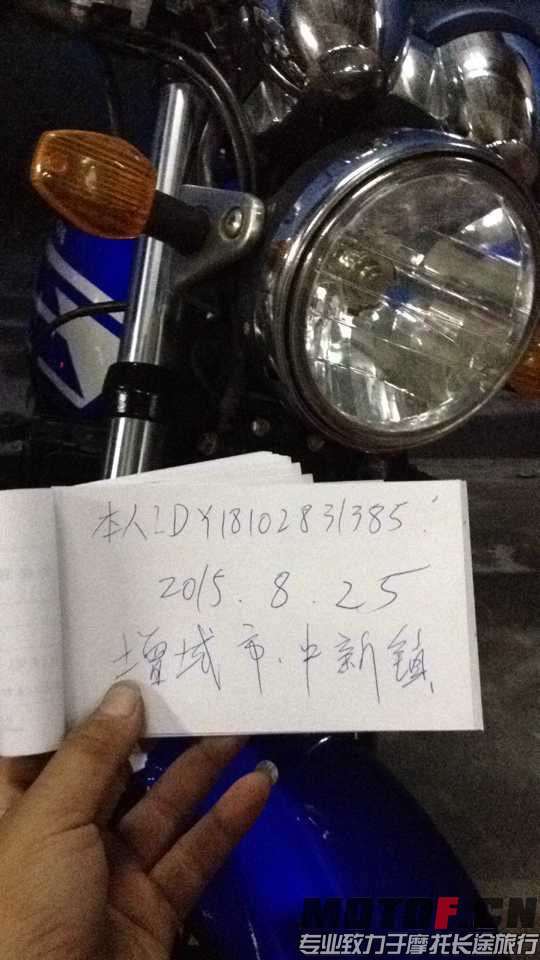 本人IDY18102831385.
2015.8.25
增城市.中新镇
MOTOF.CN
专业致力于摩托长途旅行